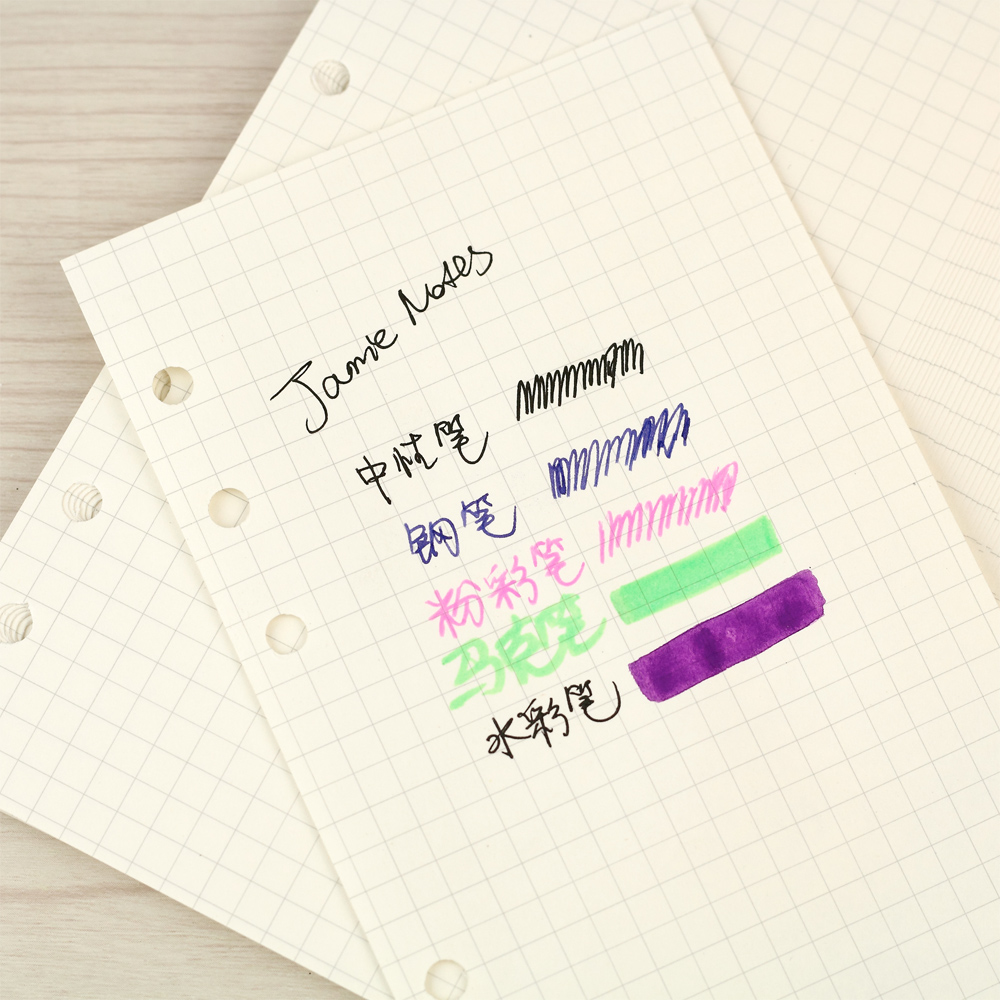 Jamie Notes
中性笔
钢笔
粉彩笔
马克笔
水彩笔